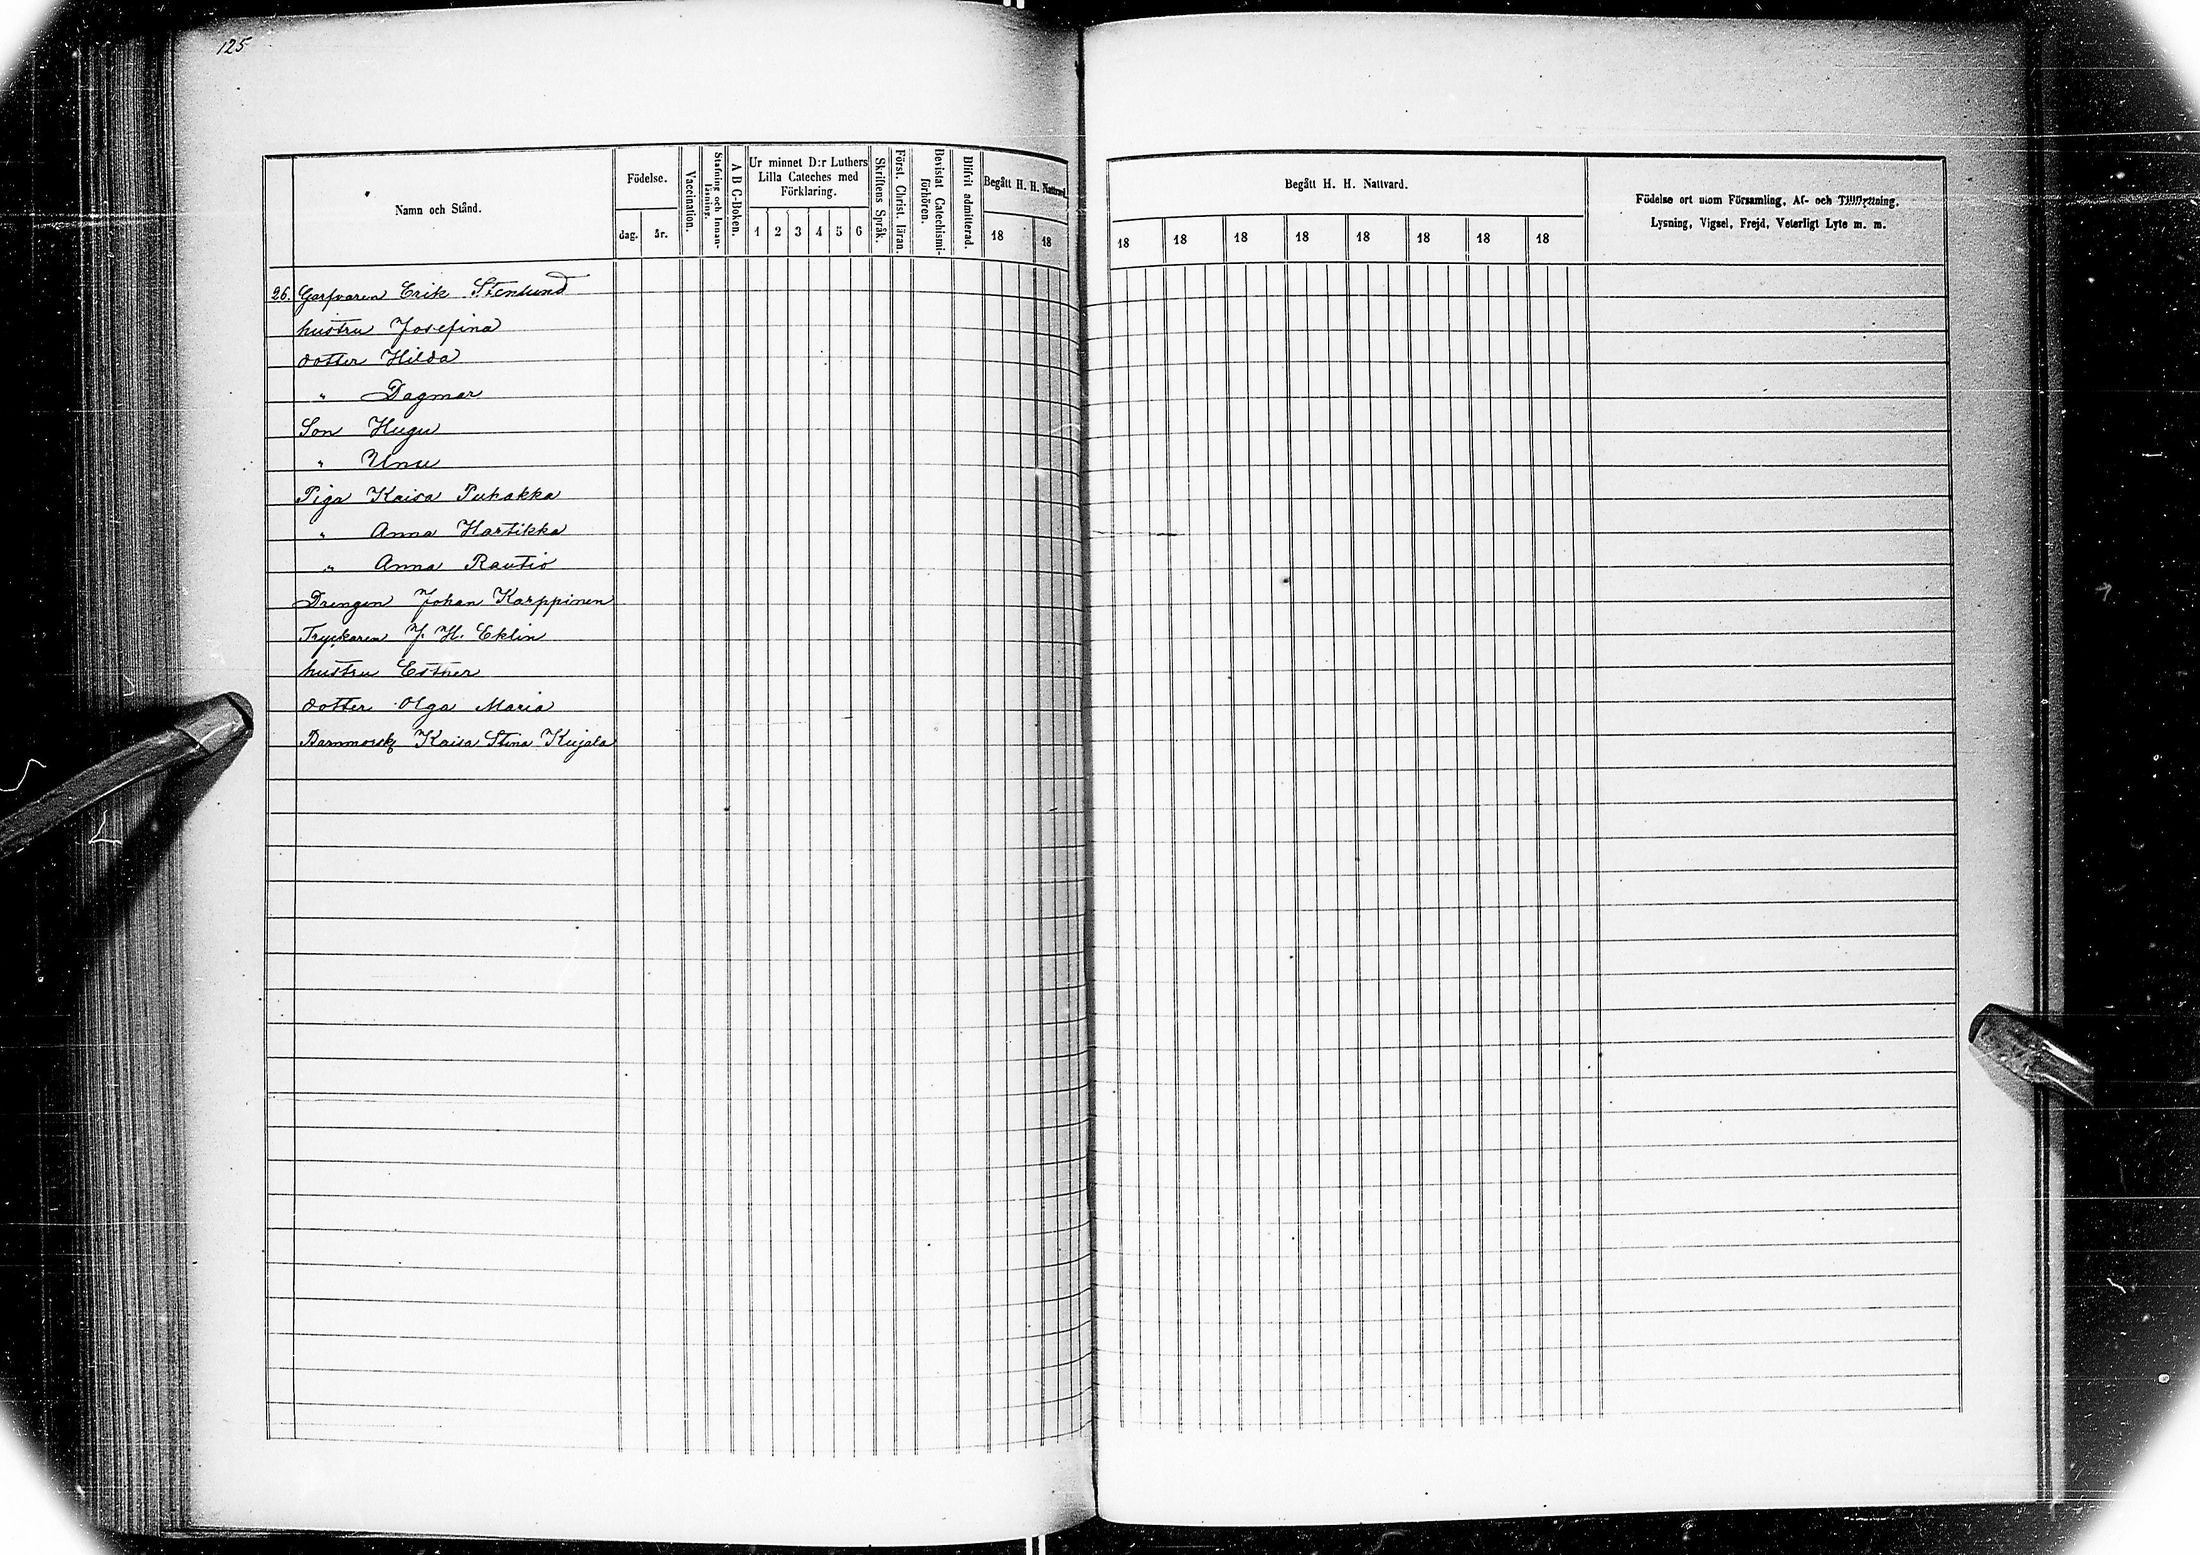 125
Namn och Stånd.
Födelse.
dag.
år.
Vaccination.
Stafning och Innan-
läsning.
A B C-Boken.
Ur minnet D:r Luthers
Lilla Cateches med
Förklaring.
1 2 3 4 5 6
Skriftens Språk.
Först. Christ. läran.
Bevistat Catechismi-
förhören.
Blifvit admitterad.
Begått H. H. Nattvard.
18 18
Begått H. H. Nattvard.
18 18 18 18 18 18 18 18
Födelse ort utom Församling, Af- och Tillflyttning,
Lysning, Vigsel, Frejd, Veterligt Lyte m. m.
26. Garfvaren Erik Stenlund
hustru Josefina
dotter Hilda
" Dagmar
Son Hugu
" Unu
Piga Kaisa Puhakka
" Anna Hartikka
" Anna Rautio
Drengen Johan Karppinen
Tryckaren J. H. Eklin
hustru Esther
dotter Olga Maria
Barnmorsk Kaisa Stina Kujala